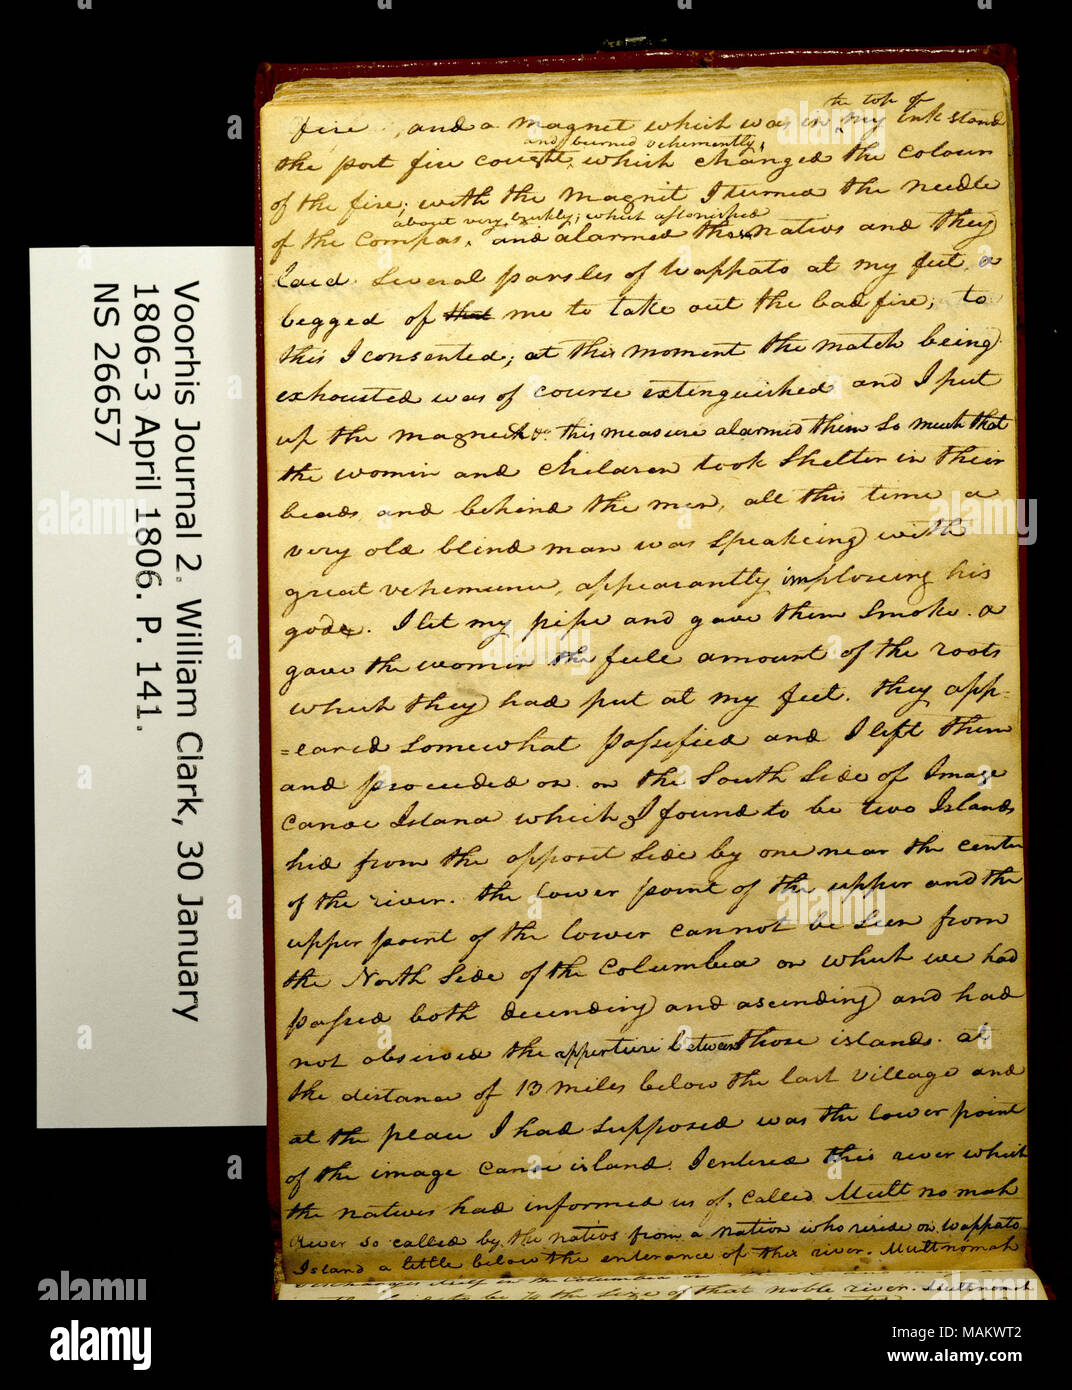 the top of
fire, and a magnet which was in my ink stand
and burned vehemently,
the port fire cought which changed the colour
of the fire; with the Magnit I turned the needle
about very briskly; which astonished
of the Compas, and alarmed these nativs and they
laid Several parsles of Wappato at my feet, &
begged of that me to take out the bad fire; to
this I consented; at this moment the match being
exhousted was of course extenguished and I put
up the magnet &c. this measure alarmed them So much that
the womin and children took Shelter in their
beads and behind the men, all this time a
very old blind man was Speaking with
great vehemunce, appearantly imploreing his
gods. I lit my pipe and gave them Smoke &
gave the womin the full amount of the roots
which they had put at my feet. they app=
=eared Somewhat passified and I left them
and proceeded on on the South Side of Image
Canoe Island which I found to be two Islands
hid from the opposit Side by one near the center
of the river. the lower point of the upper and the
upper point of the lower cannot be Seen from
the North Side of the Columbia on which we had
passed both decending and ascending and had
not observed the apperture between those islands. at
the distance of 13 miles below the last village and
at the place I had Supposed was the lower point
of the image canoe island. I entered this river which
the natives had informed us of, called Multnomah
River so called by the nativs from a nation who reside on Wappato
Island a little below the enterance of this river. Multnomah
discharges itself in the Columbia on
the Size of that noble river. Multnomah
Voorhis Journal 2. William Clark, 30 January
1806-3 April 1806. P. 141.
NS 26657
alamy
alamy
Image ID: MAKWT2
www.alamy.com